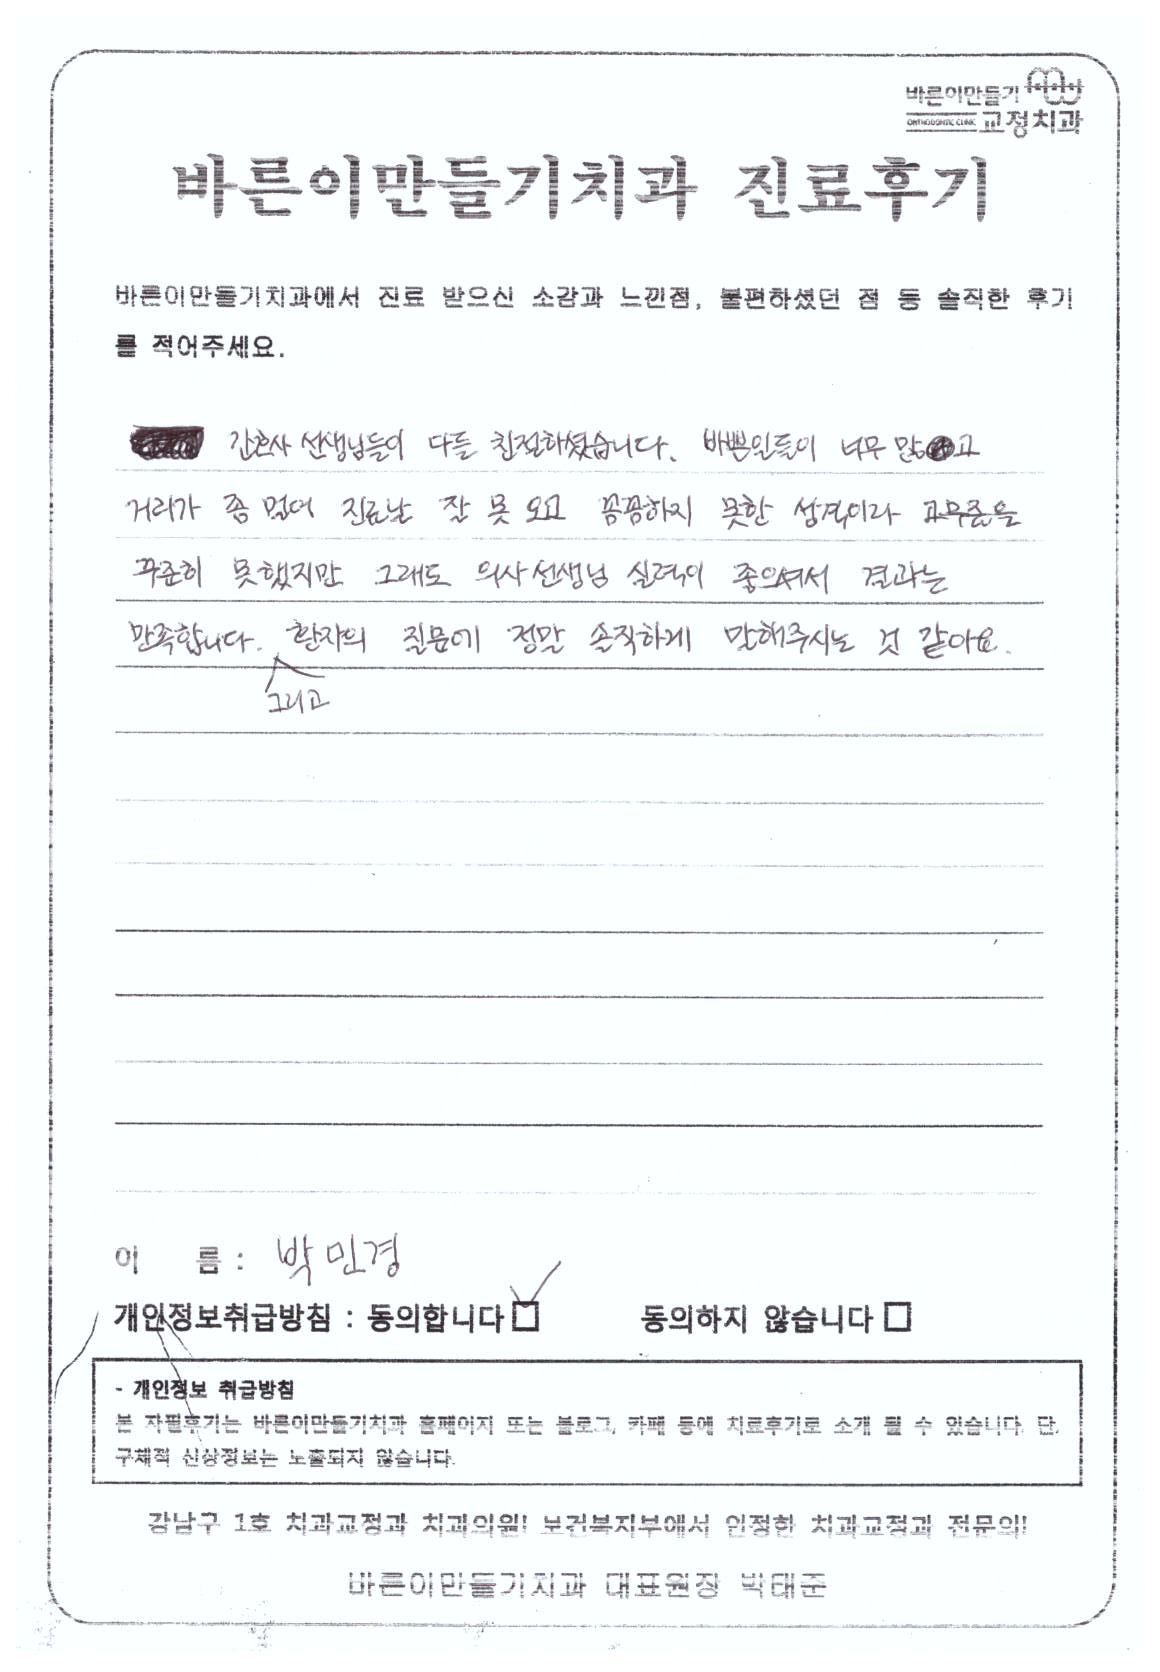 바른이만들기
ORTHODONTIC CLINIC 교정치과
바른이만들기치과 진료후기
바른이만들기치과에서 진료 받으신 소감과 느낀점, 불편하셨던 점 등 솔직한 후기
를 적어주세요.
간호사 선생님들이 다들 친절하셨습니다. 바쁜일들이 너무 많고
거리가 좀 멀어 진료날 잘 못 오고 꼼꼼하지 못한 성격이라 고무줄을
꾸준히 못했지만 그래도 의사선생님 실력이 좋으셔서 결과는
만족합니다. 환자의 질문에 정말 솔직하게 말해주시는 것 같아요.
그리고
이 름 : 박민경
개인정보취급방침 : 동의합니다 동의하지 않습니다
- 개인정보 취급방침
본 자필후기는 바른이만들기치과 홈페이지 또는 블로그, 카페 등에 치료후기로 소개 될 수 있습니다. 단,
구체적 신상정보는 노출되지 않습니다.
강남구 1호 치과교정과 치과의원! 보건복지부에서 인정한 치과교정과 전문의!
바른이만들기치과 대표원장 박태준